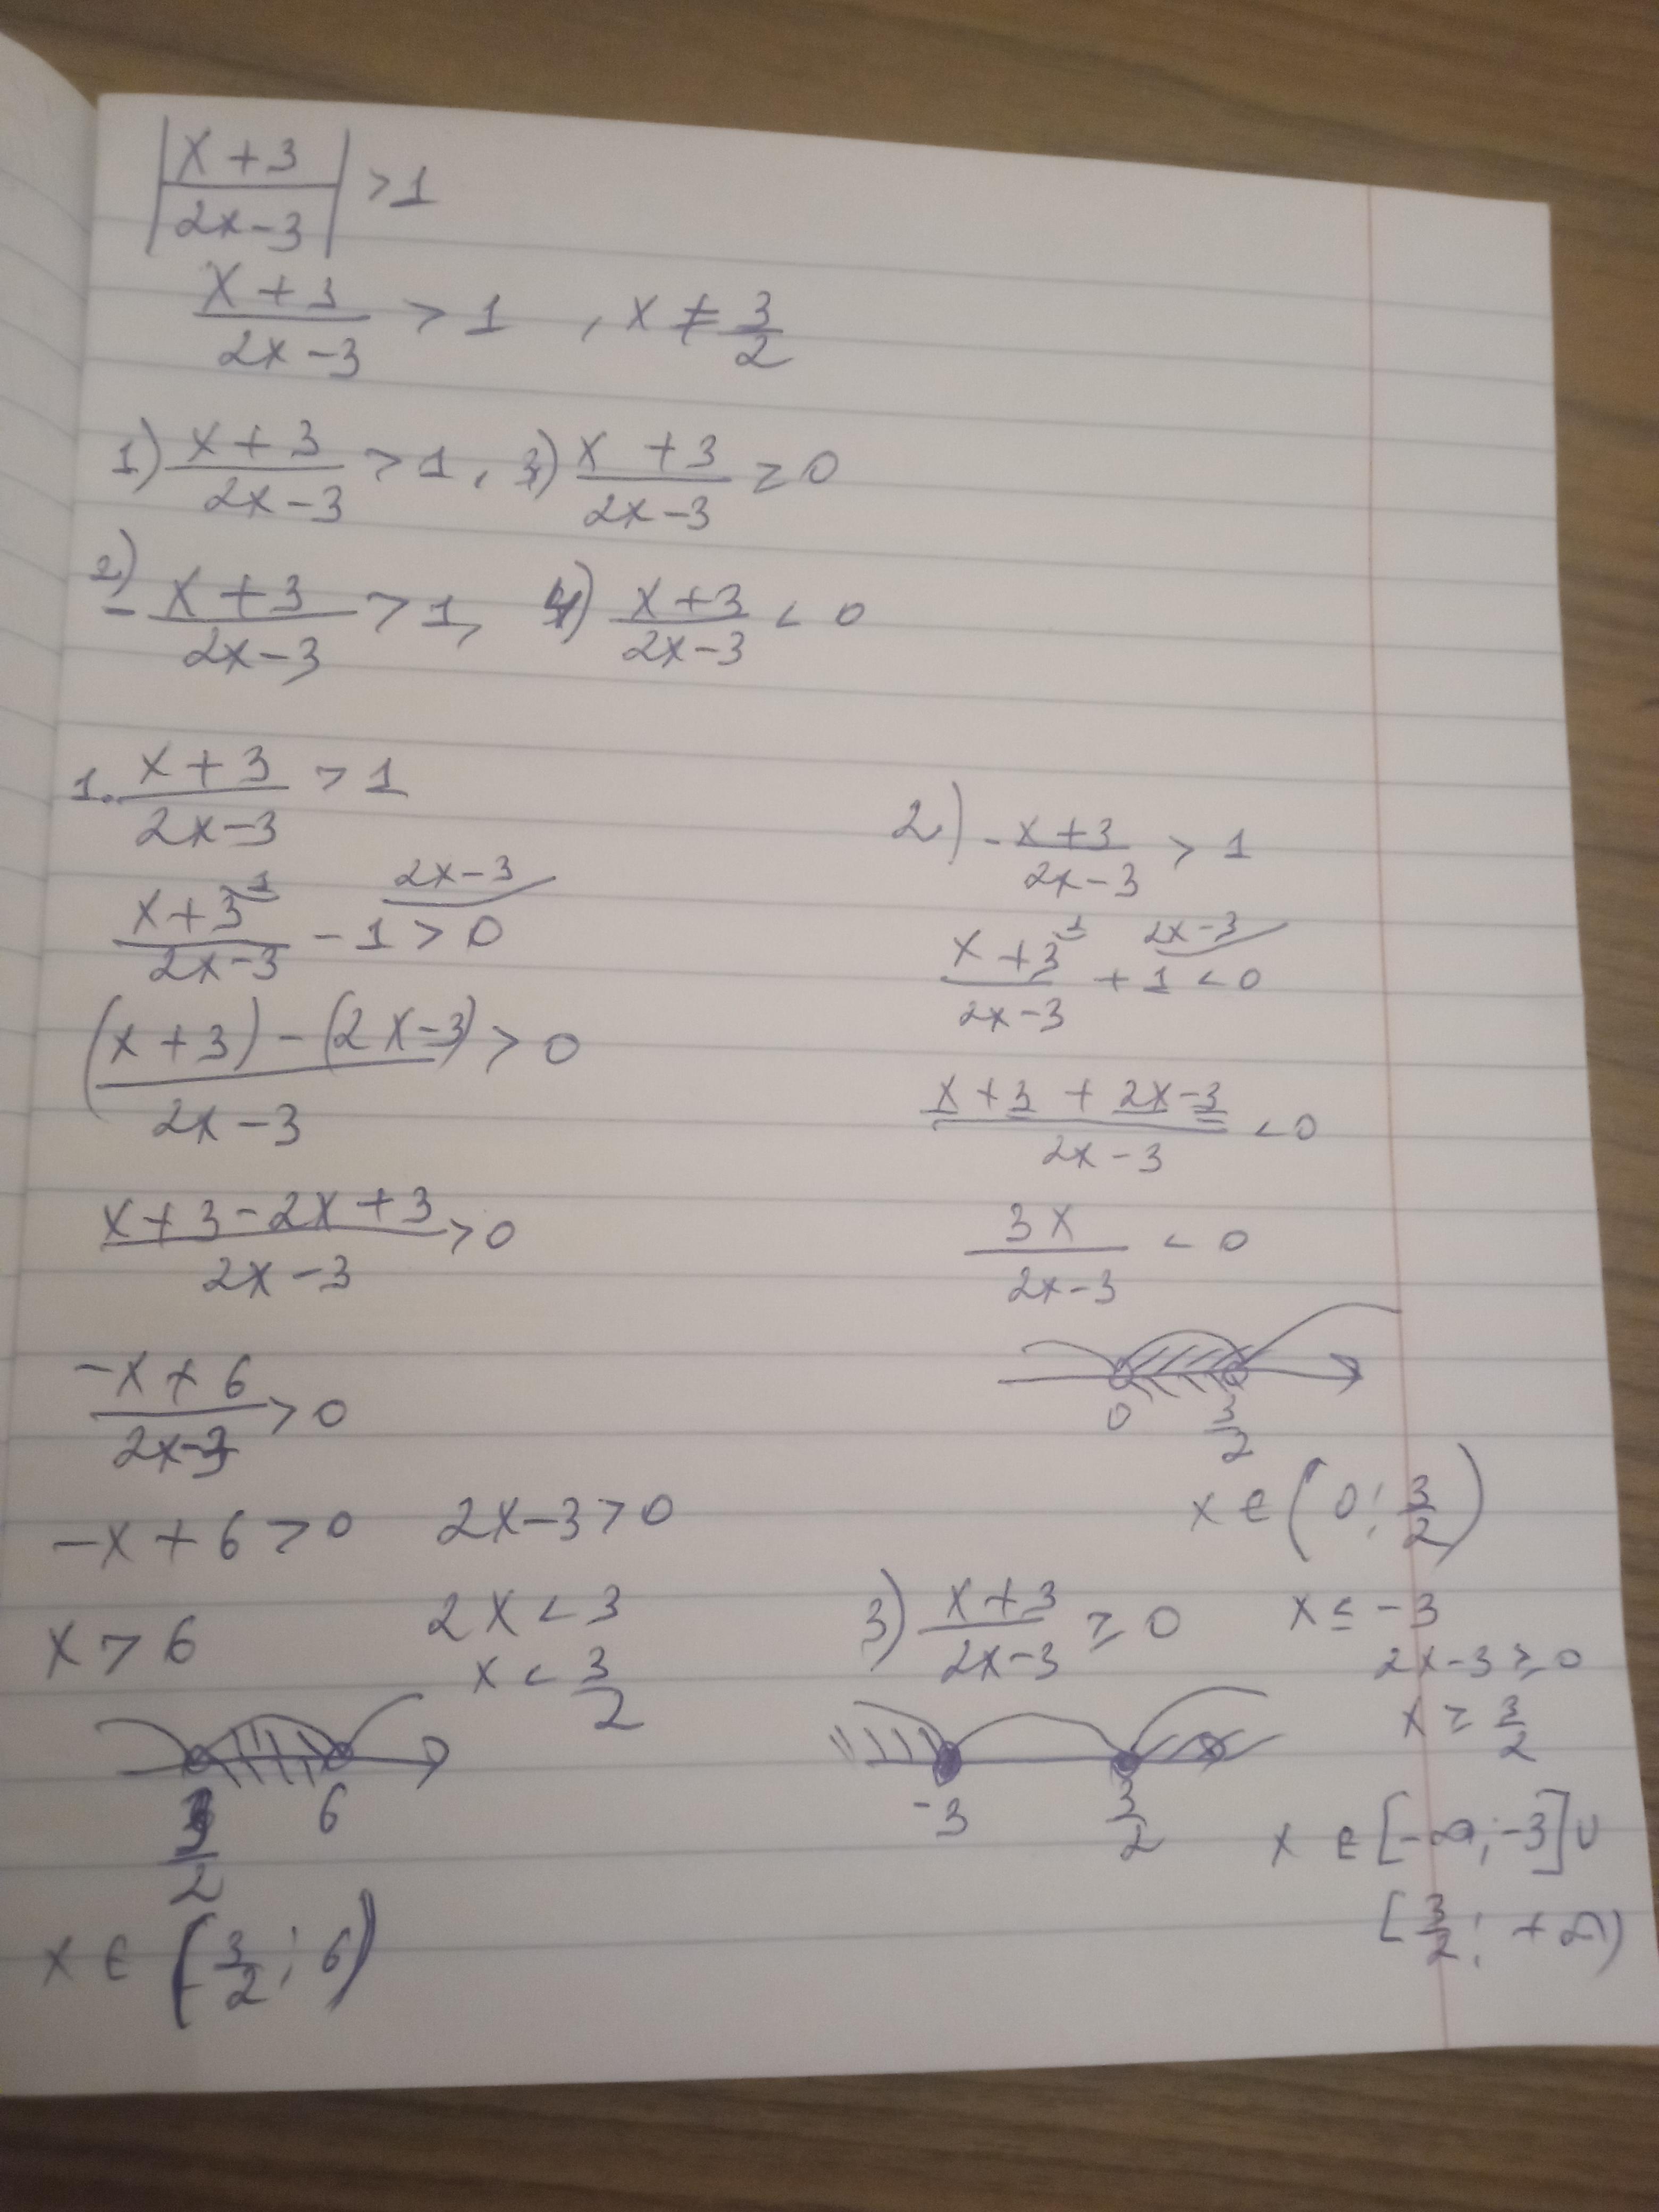 |(x+3)/(2x-3)| > 1
(x+3)/(2x-3) > 1 , x ≠ 3/2
1) (x+3)/(2x-3) > 1, 3) (x+3)/(2x-3) ≥ 0
2) -(x+3)/(2x-3) > 1, 4) (x+3)/(2x-3) < 0
1. (x+3)/(2x-3) > 1
(x+3)^1/(2x-3) - 1^(2x-3) > 0
((x+3)-(2x-3))/(2x-3) > 0
(x+3-2x+3)/(2x-3) > 0
(-x+6)/(2x-3) > 0
-x+6 > 0 2x-3 > 0
x > 6 2x < 3
x < 3/2
3/2 6
x ∈ (3/2; 6)
2) -(x+3)/(2x-3) > 1
(x+3)^1/(2x-3) + 1^(2x-3) < 0
(x+3+2x-3)/(2x-3) < 0
3x/(2x-3) < 0
0 3/2
x ∈ (0; 3/2)
3) (x+3)/(2x-3) ≥ 0 x ≤ -3
2x-3 ≥ 0
x ≥ 3/2
-3 3/2
x ∈ [-∞; -3] ∪
[3/2; +∞)